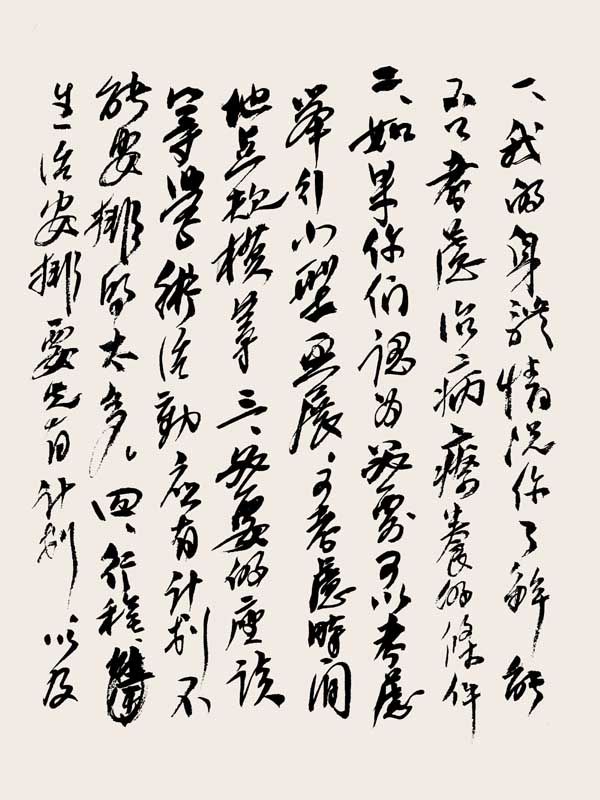 一、我的身体情况你了解 能
否考虑治病疗养的條件
二、如果你们認为必要可以考慮
举行小型画展、可考慮時间
地点规模等 三、必要的座谈
等學術活動应有计划 不
能安排的太多。四、行程、
生活安排要先有计划 以及